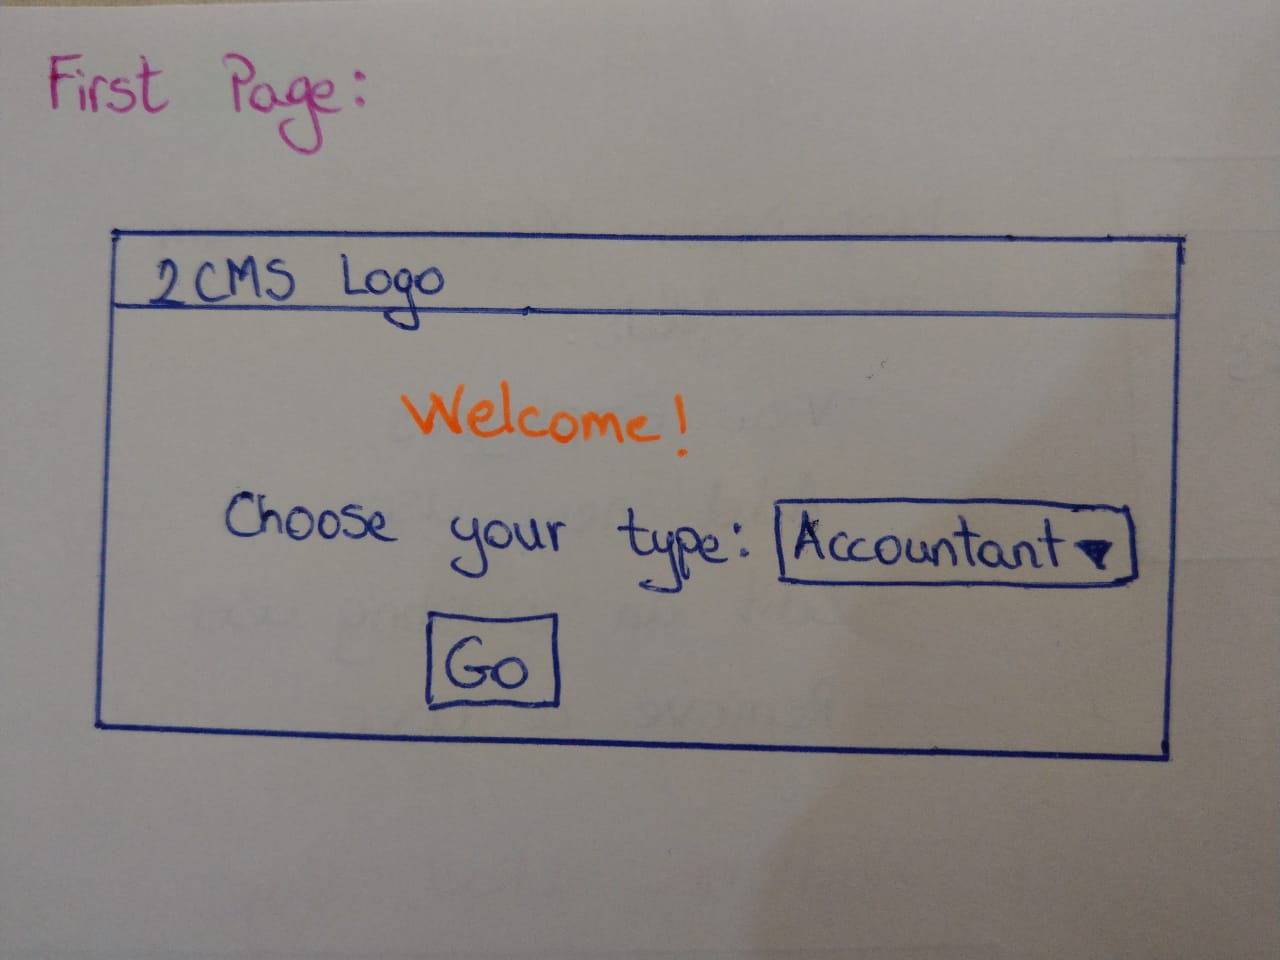 First Page:
2CMS Logo
Welcome!
Choose your type: Accountant
Go